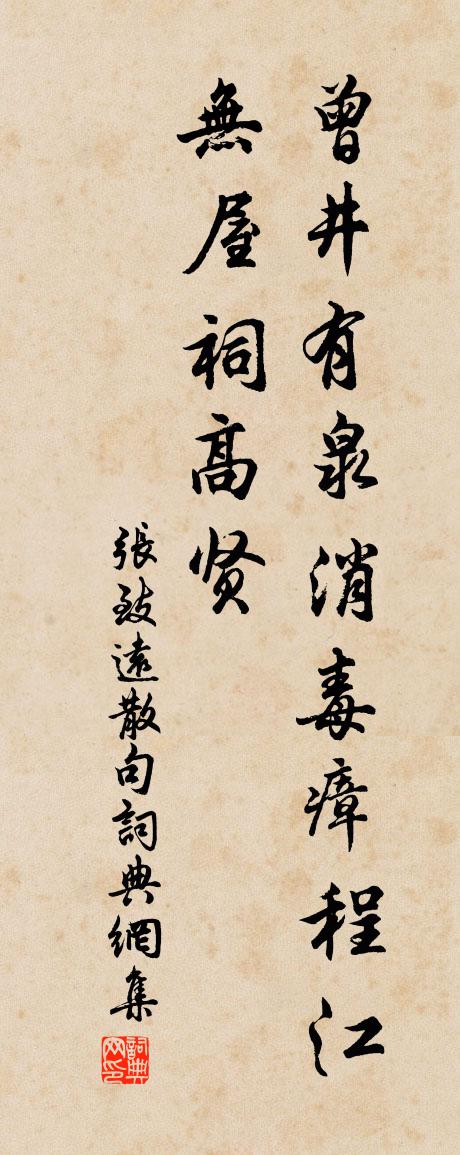 曾井有泉消毒瘴程江
無屋祠高贤
張致遠散句詞典網集
詞典网印